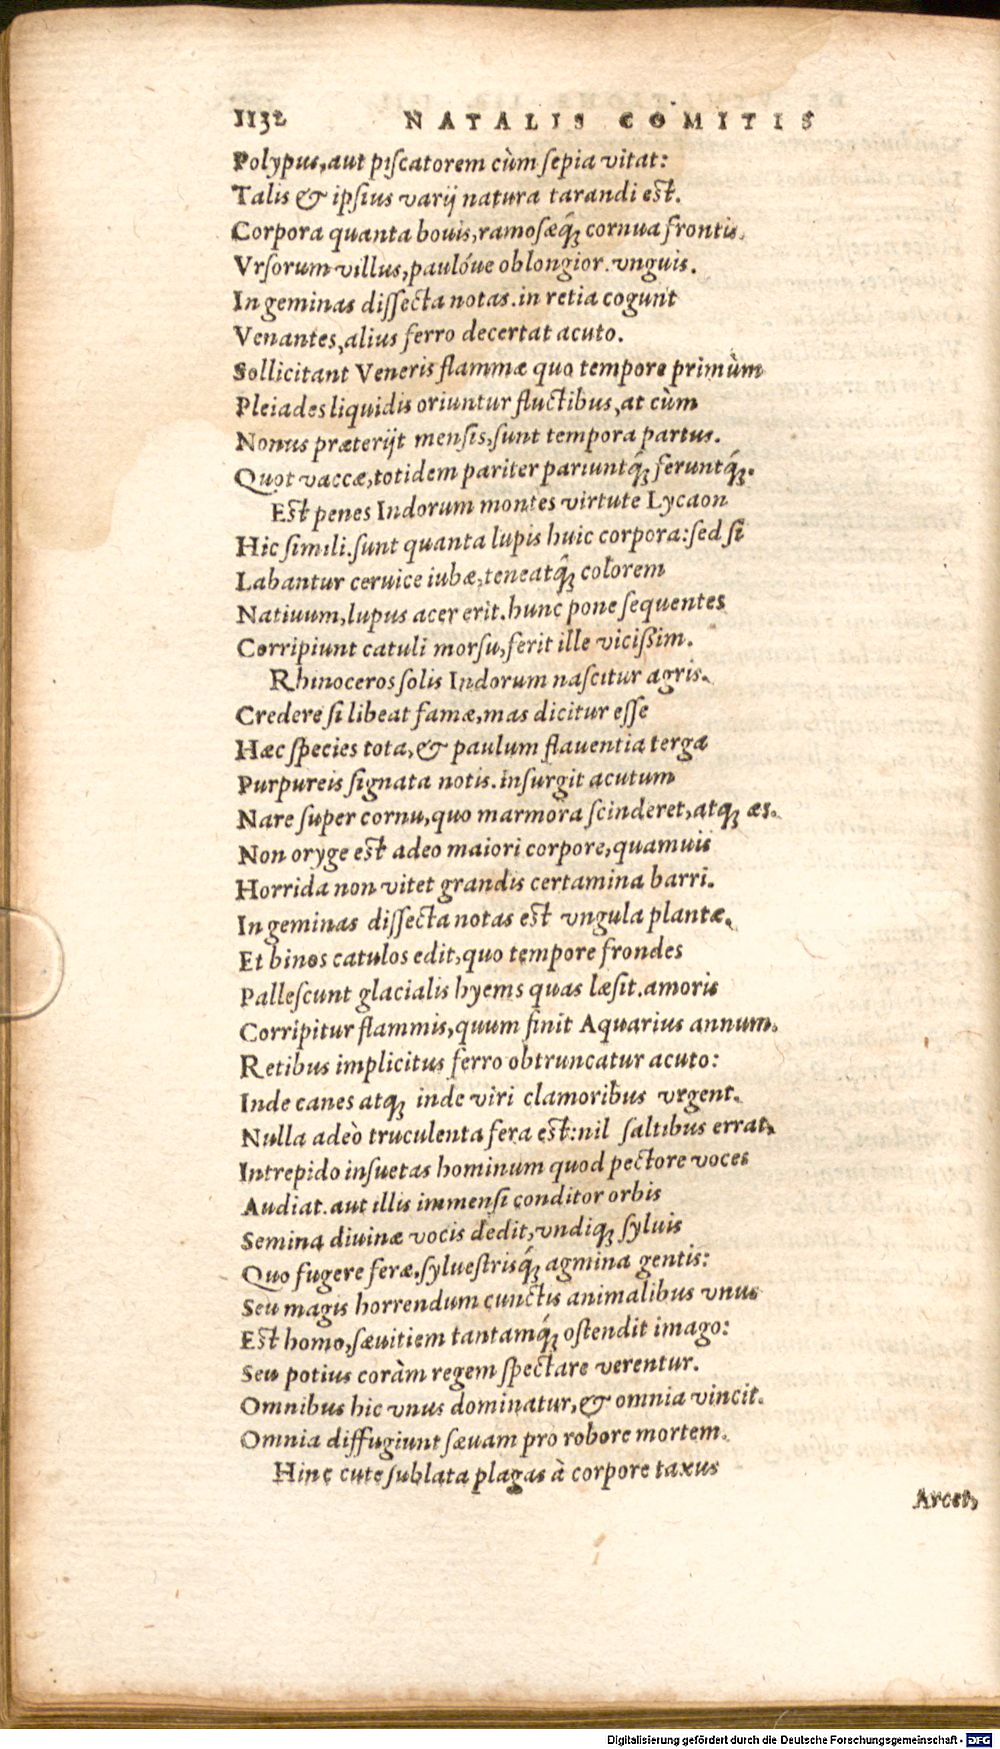 1132 NATALIS COMITIS
Polypus, aut piſcatorem cùm ſepia vitat:
Talis & ipſius varij natura tarandi eſt.
Corpora quanta bouis, ramoſæq́; cornua frontis.
Vrſorum villus, paulóue oblongior. vnguis.
In geminas diſſecta notas. in retia cogunt
Venantes, alius ferro decertat acuto.
Sollicitant Veneris flammæ quo tempore primùm
Pleiades liquidis oriuntur fluctibus, at cùm
Nonus præterijt menſis, ſunt tempora partus.
Quot vaccæ, totidem pariter pariuntq́; feruntq́;.
Eſt penes Indorum montes virtute Lycaon
Hic ſimili. ſunt quanta lupis huic corpora: ſed ſi
Labantur ceruice iubæ, teneatq́; colorem
Natiuum, lupus acer erit. hunc pone ſequentes
Corripiunt catuli morſu, ferit ille viciſſim.
Rhinoceros ſolis Indorum naſcitur agris.
Credere ſi libeat famæ, mas dicitur eſſe
Hæc ſpecies tota, & paulum flauentia terga
Purpureis ſignata notis. inſurgit acutum
Nare ſuper cornu, quo marmora ſcinderet, atq; æs.
Non oryge eſt adeo maiori corpore, quamuis
Horrida non vitet grandis certamina barri.
In geminas diſſecta notas eſt vngula plantæ.
Et binos catulos edit, quo tempore frondes
Palleſcunt glacialis hyems quas læſit. amoris
Corripitur flammis, quum finit Aquarius annum.
Retibus implicitus ferro obtruncatur acuto:
Inde canes atq; inde viri clamoribus vrgent.
Nulla adeò truculenta fera eſt: nil ſaltibus errat,
Intrepido inſuetas hominum quod pectore voces
Audiat. aut illis immenſi conditor orbis
Semina diuinæ vocis dedit, vndiq; ſyluis
Quo fugere feræ, ſylueſtrisq́; agmina gentis:
Seu magis horrendum cunctis animalibus vnus
Eſt homo, ſæuitiem tantamq́; oſtendit imago:
Seu potius coràm regem ſpectare verentur.
Omnibus hic vnus dominatur, & omnia vincit.
Omnia diffugiunt ſæuam pro robore mortem.
Hinc cute ſublata plagas à corpore taxus
Arcet,
Digitalisierung gefördert durch die Deutsche Forschungsgemeinschaft - DFG